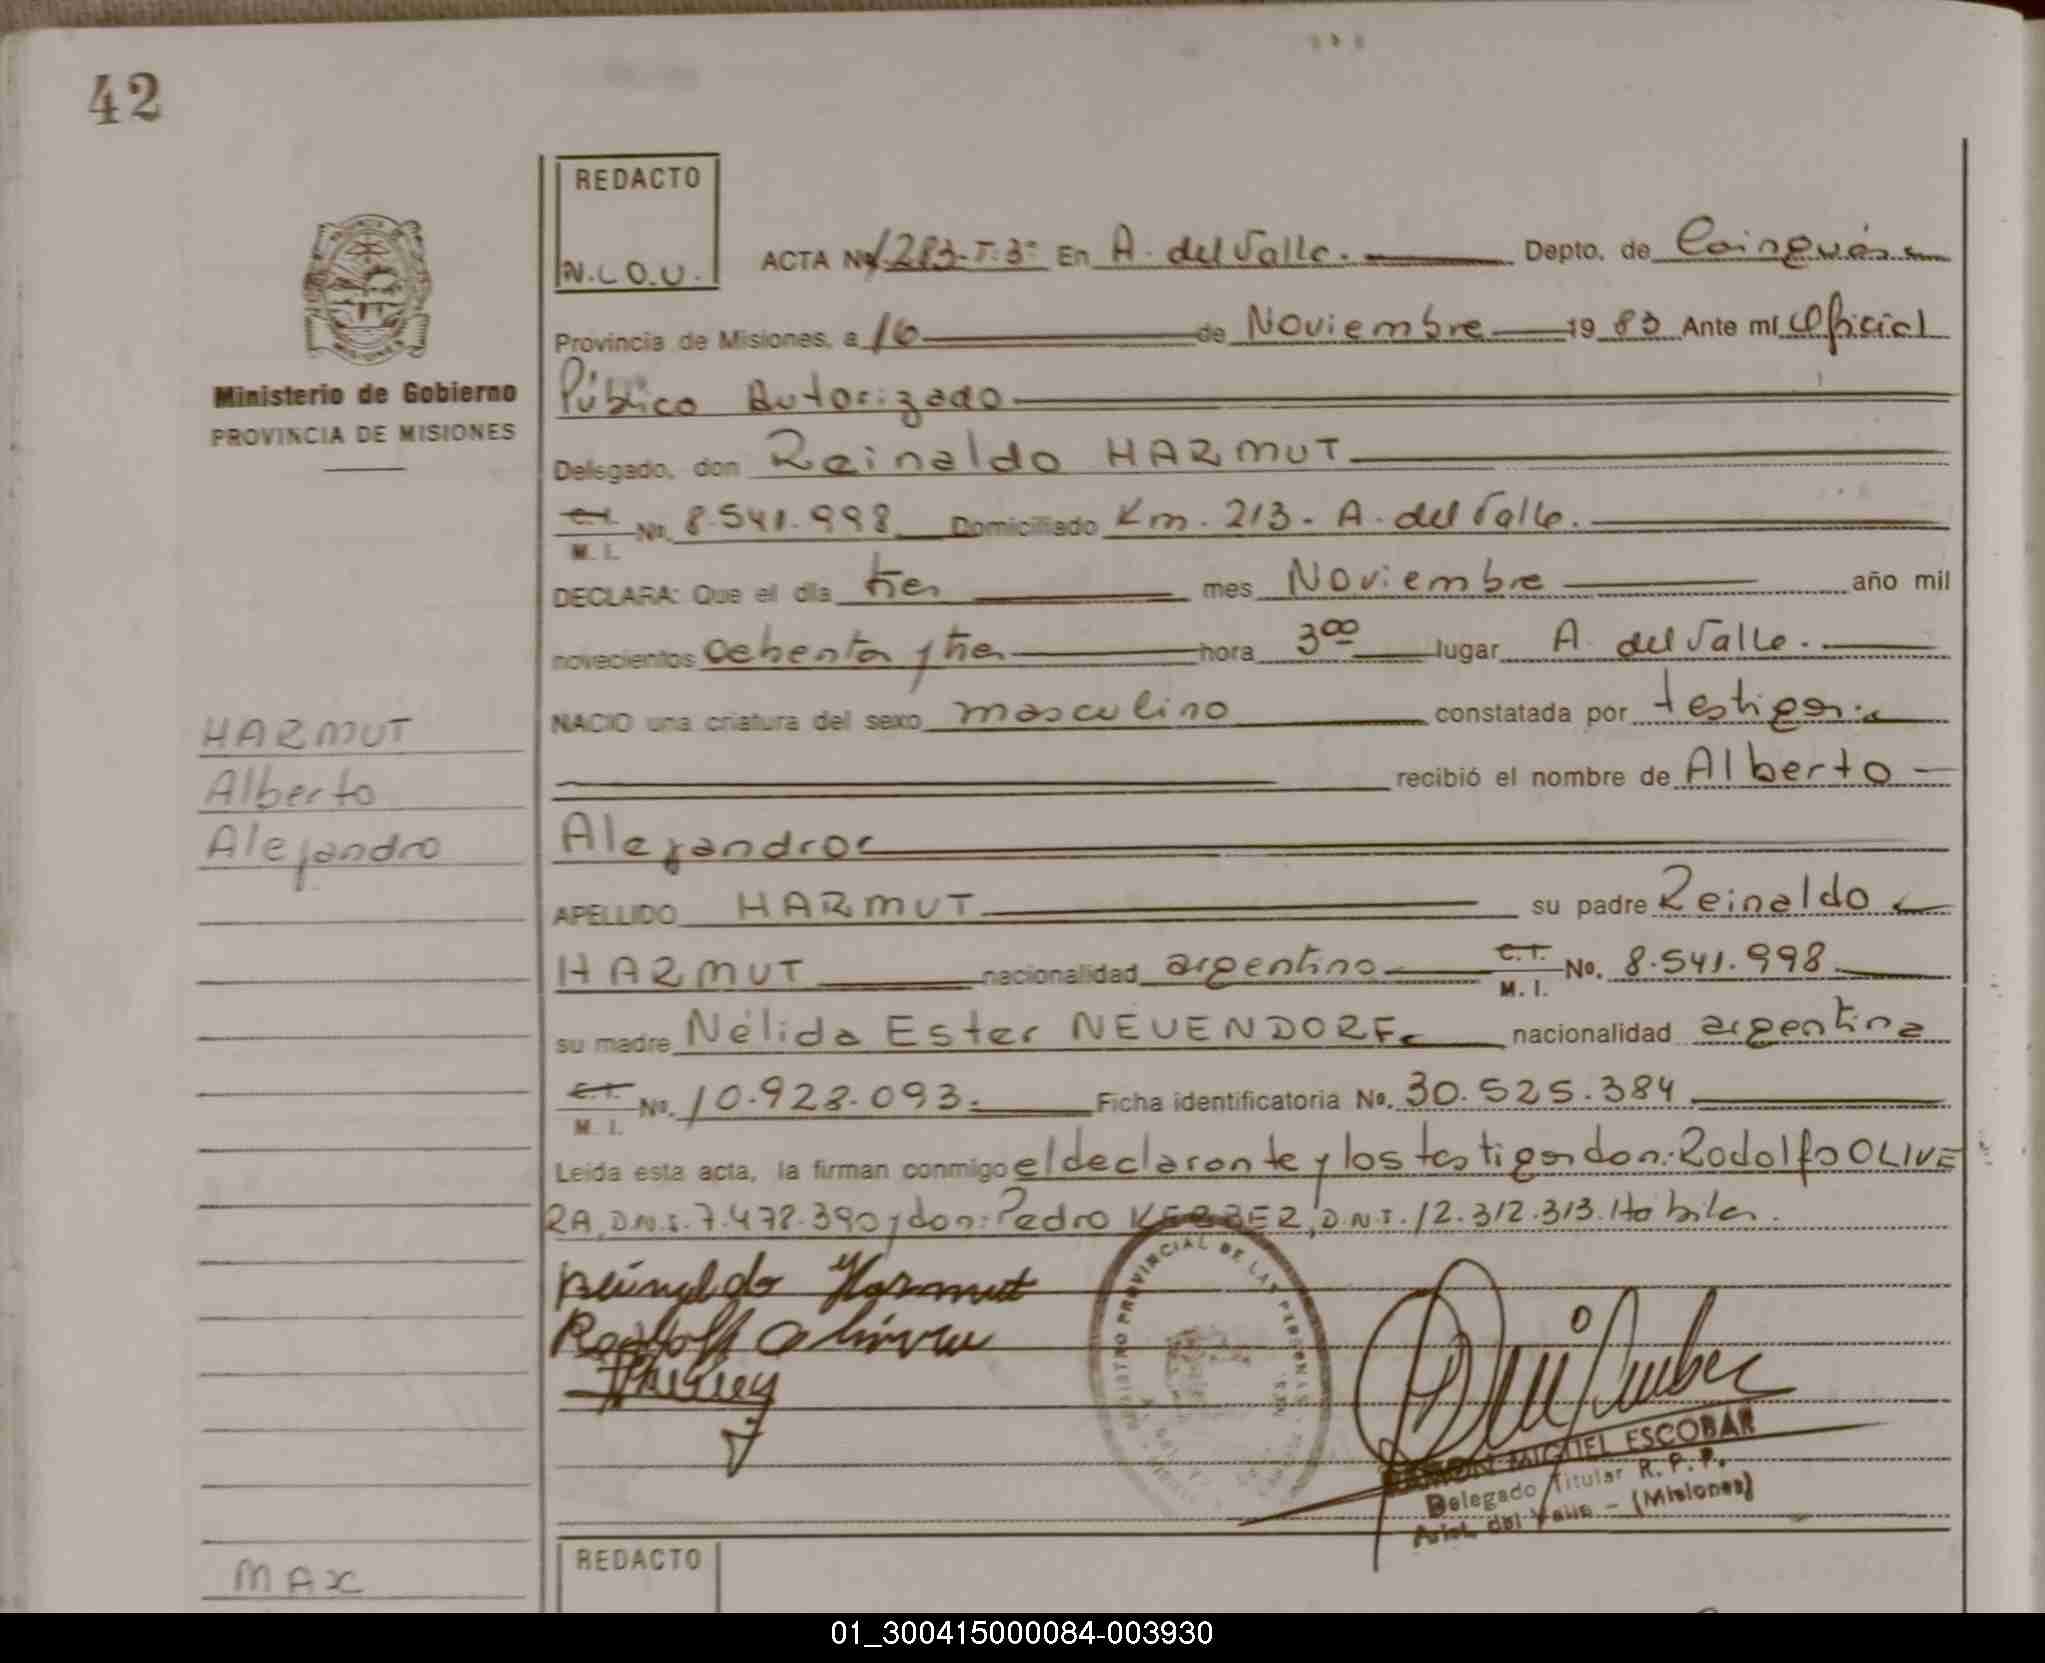 42
REDACTO
N.L.O.U.
ACTA Nº 283-T:3º En A. del Valle. Depto. de Cainguás
Ministerio de Gobierno
PROVINCIA DE MISIONES
Provincia de Misiones, a 16 de Noviembre 1983 Ante mí Oficial
Público Autorizado
Delegado, don Reinaldo HARMUT
C.I. M. I. No. 8.541.998 Domiciliado Km. 213. A. del Valle.
DECLARA: Que el día tres mes Noviembre año mil
novecientos ochenta y tres hora 3 00 lugar A. del Valle.
NACIO una criatura del sexo masculino constatada por testigos
recibió el nombre de Alberto
Alejandro
HARMUT
Alberto
Alejandro
APELLIDO HARMUT su padre Reinaldo
HARMUT nacionalidad argentino C.I. M. I. No. 8.541.998
su madre Nélida Ester NEUENDORF nacionalidad argentina
C.I. M. I. No. 10.928.093. Ficha identificatoria No. 30.525.384
Leída esta acta, la firman conmigo el declarante y los testigos don: Rodolfo OLIVE
RA, D.N.I. 7.478.390 y don: Pedro KERBER, D.N.I. 12.312.313. Hábiles.
Reinaldo Harmut
Rodolfo Olivera
REGISTRO PROVINCIAL DE LAS PERSONAS
RAMON MIGUEL ESCOBAR
Delegado Titular R. P. P.
Arist. del Valle - (Misiones)
REDACTO
MAX
01_300415000084-003930